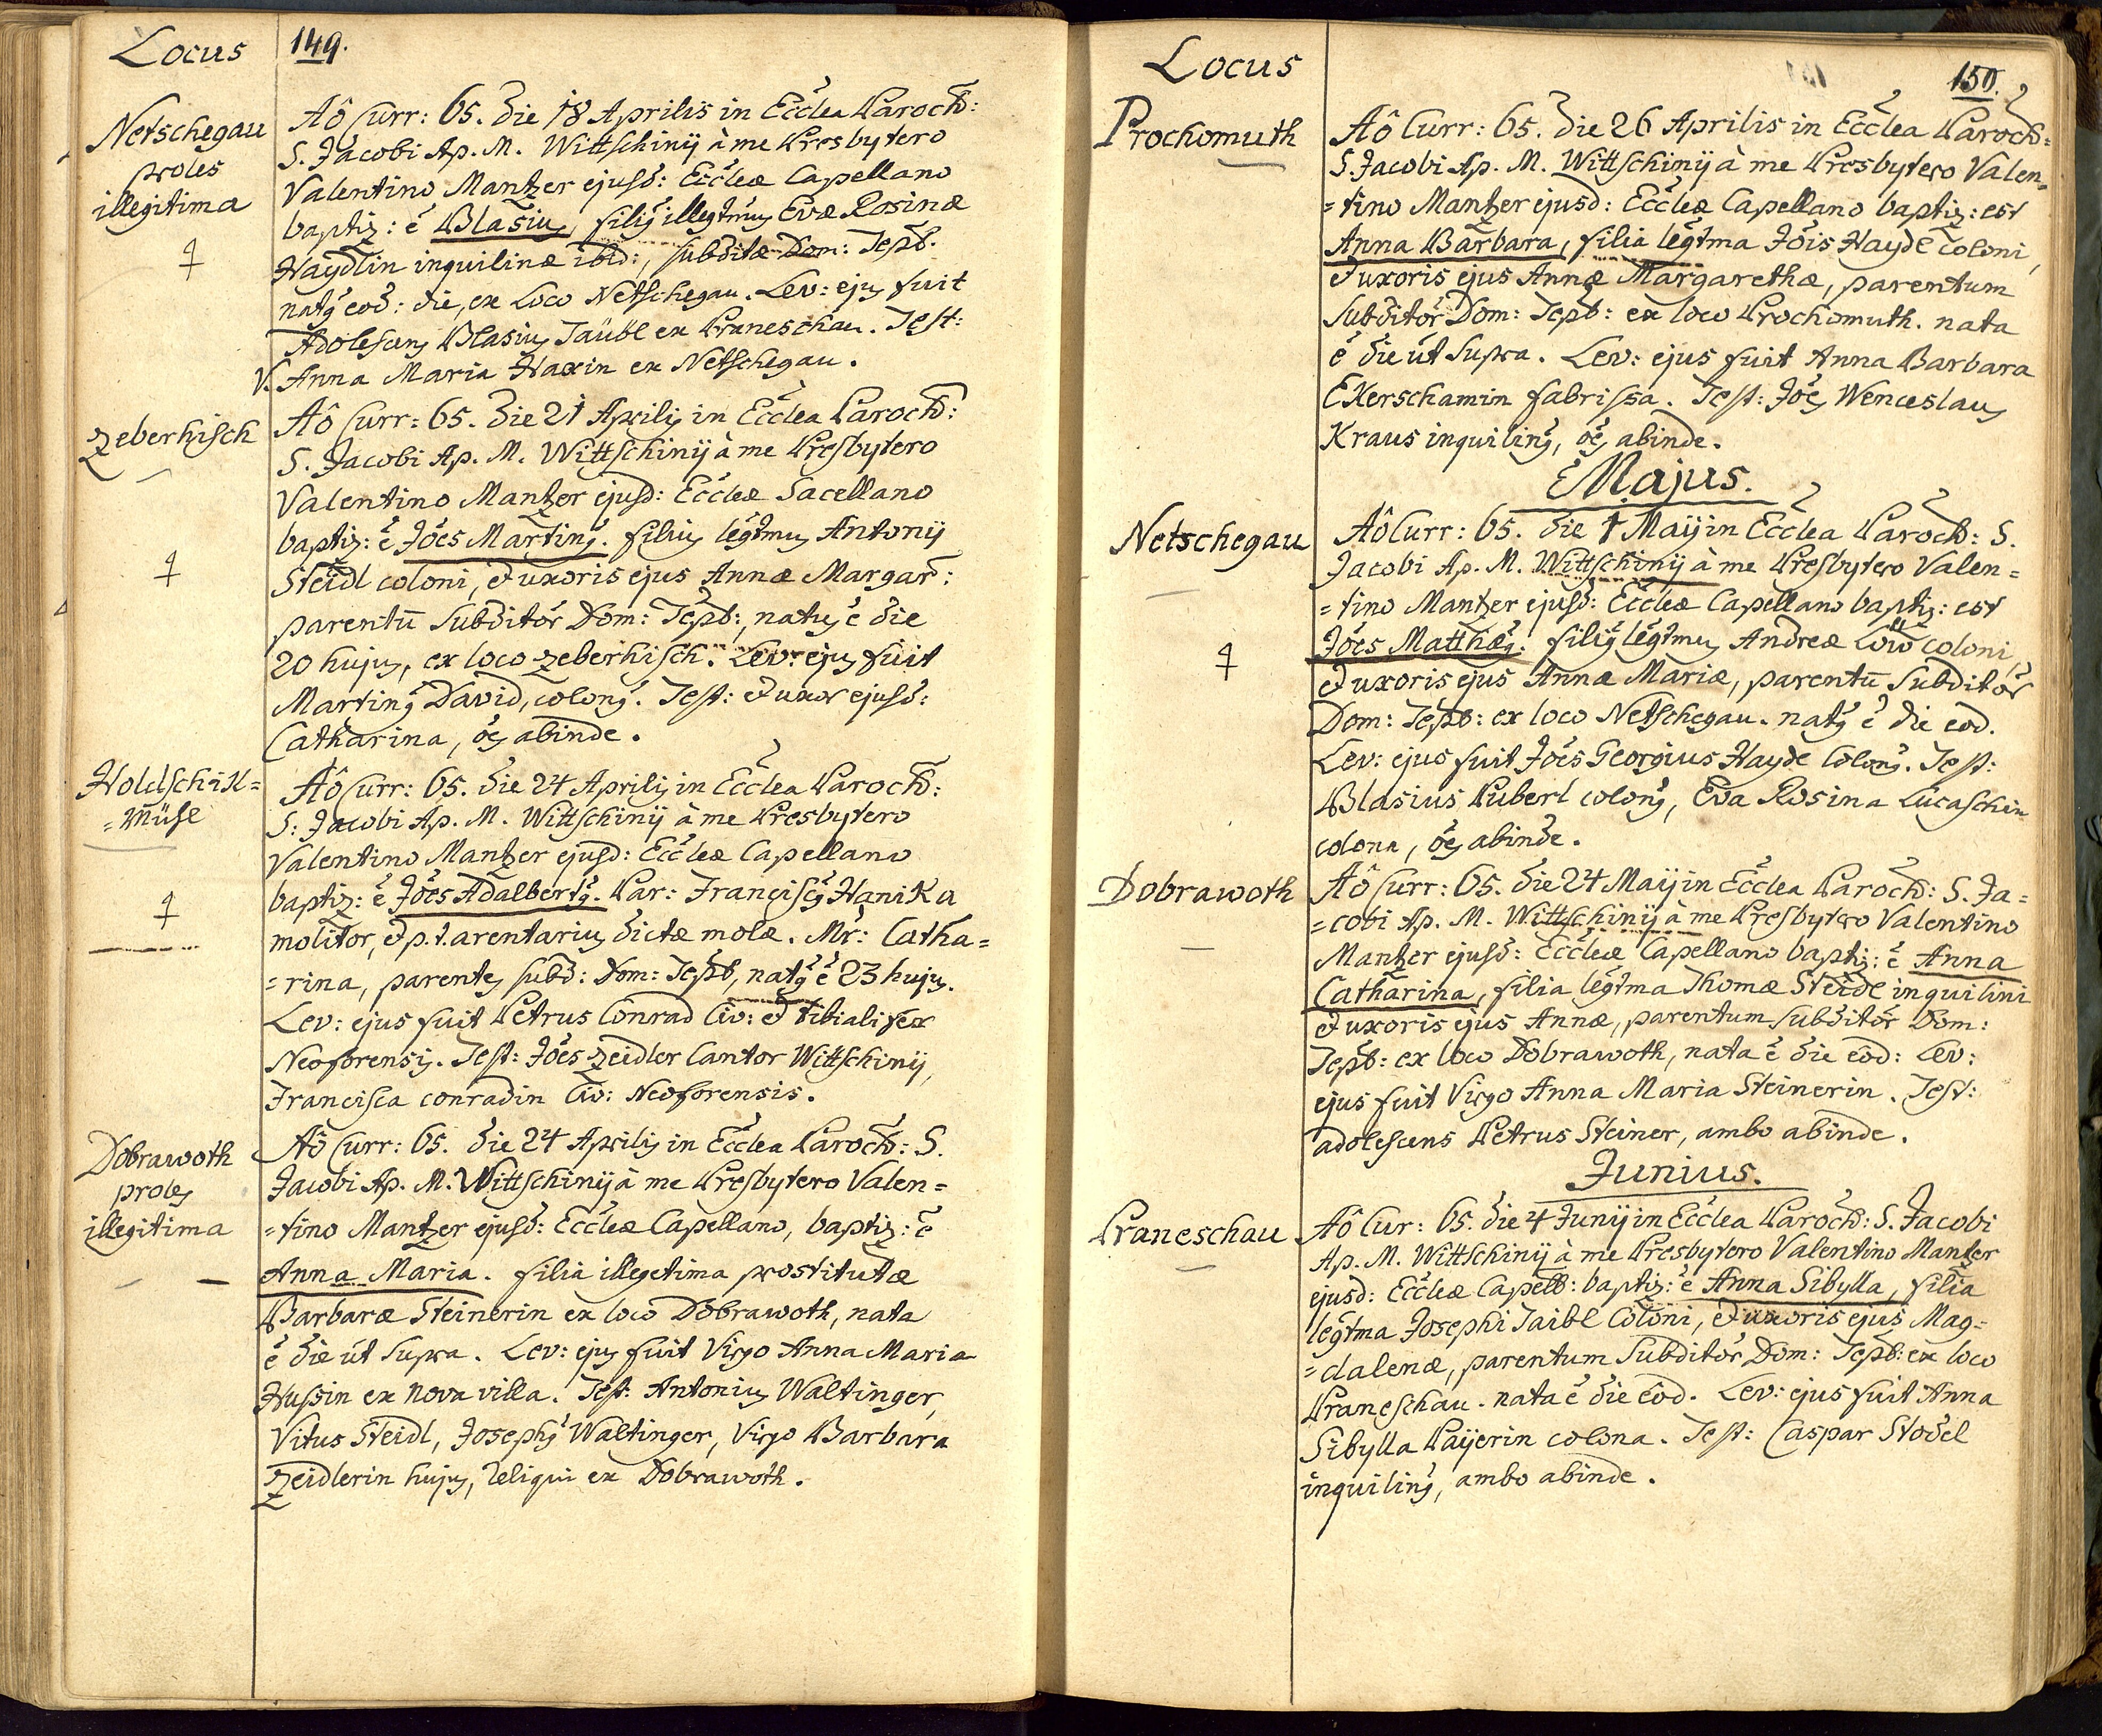 Locus
149.
Netschegau
proles
illegitima
Aô Curr: 65. die 18 Aprilis in Ecclea Paroch:
S. Jacobi Ap. M. Wittschinij à me Presbytero
Valentino Mantzer ejusd: Eccleæ Capellano
baptiz: ẽ Blasius, filius illegtmus Evæ Rosinæ
Haydlin inquilinæ ibid:, subditæ Dom: Tepb.
natus eod: die, ex Loco Netschegau. Lev: ejus fuit
Adolescens Blasius Taübl ex Praneschau. Test:
V. Anna Maria Haxin ex Netschegau.
Zeberhisch
Aô Curr: 65. die 21 Aprilis in Ecclea Paroch:
S. Jacobi Ap. M. Wittschinij à me Presbytero
Valentino Mantzer ejusd: Eccleæ Sacellano
baptiz: ẽ Jões Martinus. filius legtmus Antonij
Steidl coloni, et uxoris ejus Annæ Margar:
parentū Subditor Dom: Tepb:, natus ẽ die
20 hujus, ex loco Zeberhisch. Lev: ejus fuit
Martinus David, colonus. Test: et uxor ejusd:
Catharina, oes abinde.
Holdschik=
=Mühl
Aô Curr: 65. die 24 Aprilis in Ecclea Paroch:
S: Jacobi Ap. M. Wittschinij à me Presbytero
Valentino Mantzer ejusd: Eccleæ Capellano
baptiz: ẽ Jões Adalbertus. Par: Franciscus Hanika
molitor, et p. t. arentarius dictæ molæ. Mr: Catha=
=rina, parentes subd: Dom: Tepb, natus ẽ 23 hujus.
Lev: ejus fuit Petrus Conrad Civ: et tibialifex
Neoforensis. Test: Jões Zeidler Cantor Wittschinij,
Francisca conradin Civ: Neoforensis.
Dobrawoth
proles
illegitima
Aô Curr: 65. die 24 Aprilis in Ecclea Paroch: S.
Jacobi Ap. M. Wittschinij à me Presbytero Valen=
=tino Mantzer ejusd: Eccleæ Capellano, baptiz: ẽ
Anna Maria. filia illegetima prostitutæ
Barbaræ Steinerin ex loco Dobrawoth, nata
ẽ die út Supra. Lev: ejus fuit Virgo Anna Maria
Hussin ex nova villa. Test: Antonius Waltinger,
Vitus Steidl, Josephus Waltinger, Virgo Barbara
Zeidlerin hujus, reliqui ex Dobrawoth.
Locus
150.
Prochomuth
Aô Curr: 65. die 26 Aprilis in Ecclea Paroch=
S. Jacobi Ap. M. Wittschinij à me Presbytero Valen=
=tino Mantzer ejusd: Eccleæ Capellano baptiz: est
Anna Barbara, filia legtma Jõis Haydl coloni,
et uxoris ejus Annæ Margarethæ, parentum
Subditor Dom: Tepb: ex loco Prochomuth. nata
ẽ die út Supra. Lev: ejus fuit Anna Barbara
Ekerschamin fabrissa. Test: Jões Wenceslaus
Kraus inquilinus, oes abinde.
Majus.
Netschegau
Aô Curr: 65. die 1 Maij in Ecclea Paroch: S.
Jacobi Ap. M. Wittschinij à me Presbytero Valen=
=tino Mantzer ejusd: Eccleæ Capellano baptiz: est
Jões Matthæus. filius legtmus Andreæ Löw coloni,
et uxoris ejus Annæ Mariæ, parentū Subditor
Dom: Tepb: ex loco Netschegau. natus ẽ die eod.
Lev: ejus fuit Jões Georgius Haydl Colonus. Test:
Blasius Puberl colonus, Eva Rosina Lucaschin
colona, oes abinde.
Dobrawoth
Aô Curr: 65. die 24 Maij in Ecclea Paroch: S. Ja=
=cobi Ap. M. Wittschinij à me Presbytero Valentino
Mantzer ejusd: Eccleæ Capellano baptiz: ẽ Anna
Catharina, filia legtma Thomæ Steidl inquilini
et uxoris ejus Annæ, parentum subditor Dom:
Tepb: ex loco Dobrawoth, nata ẽ die eod: Lev:
ejus fuit Virgo Anna Maria Steinerin. Test:
adolescens Petrus Steiner, ambo abinde.
Junius.
Praneschau
Aô Cur: 65. die 4 Junij in Ecclea Paroch: S. Jacobi
Ap. M. Wittschinij à me Presbytero Valentino Mantzer
ejusd: Eccleæ Capell: baptiz: ẽ Anna Sibylla, filia
legtma Josephi Taibl Coloni, et uxoris ejus Mag=
=dalenæ, parentum Subditor Dom: Tepb: ex loco
Praneschau. nata ẽ die eod. Lev: ejus fuit Anna
Sibylla Paijerin colona. Test: Caspar Stodel
inquilinus, ambo abinde.